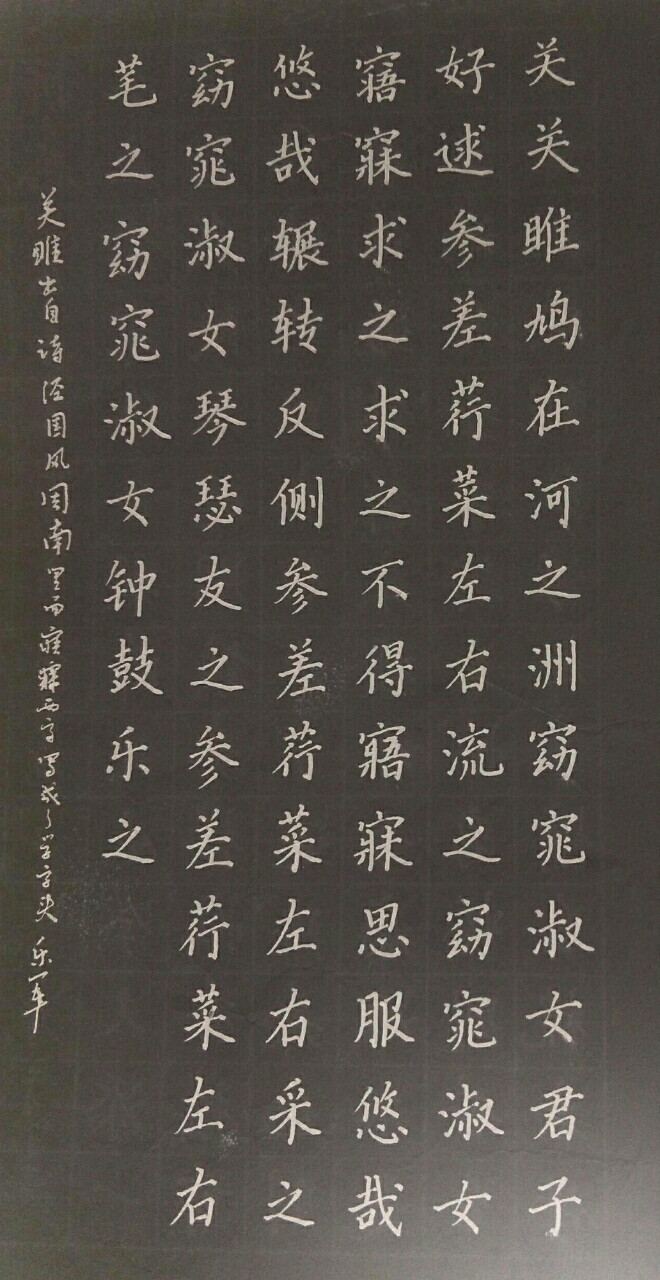 关关雎鸠在河之洲窈窕淑女君子
好逑参差荇菜左右流之窈窕淑女
寤寐求之求之不得寤寐思服悠哉
悠哉辗转反侧参差荇菜左右采之
窈窕淑女琴瑟友之参差荇菜左右
芼之窈窕淑女钟鼓乐之
关雎出自诗经国风周南里面寤寐两字写成了学字头 乐军